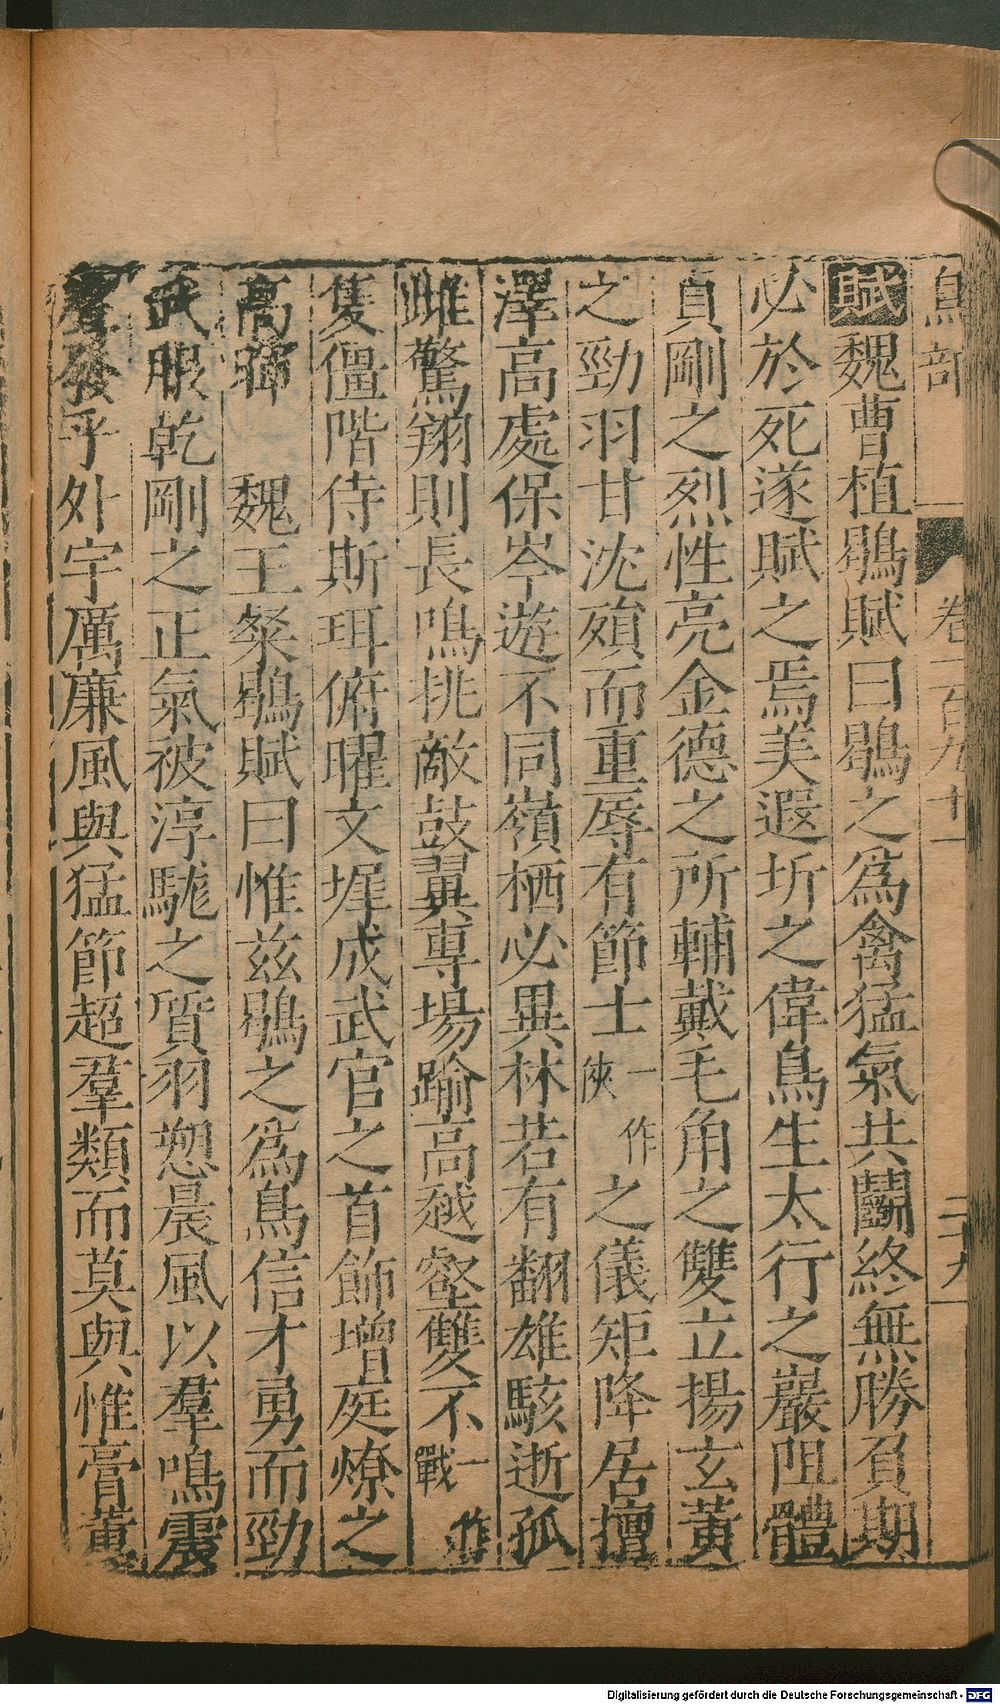 鳥部 卷一百九十一 二十九
賦魏曹植鶡賦曰鶡之爲禽猛氣共鬭終無勝負期
必於死遂賦之焉美遐圻之偉鳥生太行之巖阻體
貞剛之烈性亮金德之所輔戴毛角之雙立揚玄黃
之勁羽甘沈殞而重辱有節士一作俠之儀矩降居檀
澤高處保岑遊不同嶺栖必異林若有翻雄駭逝孤
雌驚翔則長鳴挑敵鼓翼專場踰高越壑雙不一作戰
隻僵階侍斯珥俯曜文墀成武官之首飾增庭燎之
高暉 魏王粲鶡賦曰惟茲鶡之爲鳥信才勇而勁
武服乾剛之正氣被淳駹之質羽愬晨風以羣鳴震
聲發乎外宇厲廉風與猛節超羣類而莫與惟膏薰
Digitalisierung gefördert durch die Deutsche Forschungsgemeinschaft - DFG